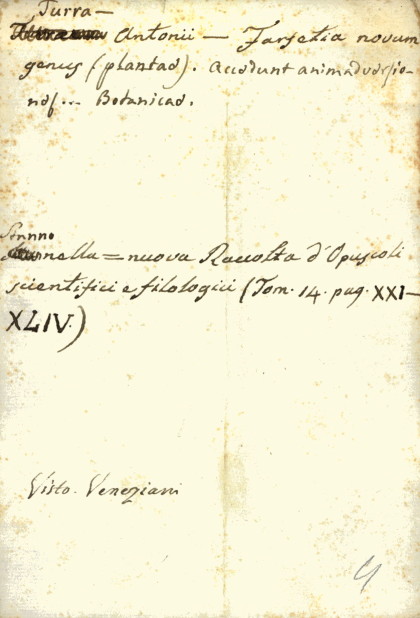 Turra—
Antonii — Farsetia novum
genus (plantæ). Accedunt animadversio-
nes... Botanicæ.
Annno
nella = nuova Raccolta d'Opuscoli
scientifici e filologici (Tom. 14. pag. XXI—
XLIV.)
Visto. Veneziani